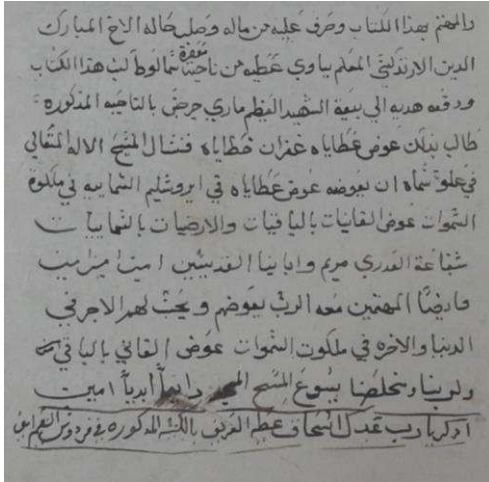 والمهتم بهذا الكتاب وصرف عليه من ماله وصلب حاله الاخ المبارك
الدين الارتدكسي المعلم بباوي عطيه من ناحية سمالوط لب هذا الكتاب
ودفعه هديه الي بيعة الشهيد العظيم ماري جرجس بالناحيه المذكوره
طالب بذلك عوض عطاياه غفران خطاياه فنسال المسيح الاله المتعالي
في علو سماه ان يعوضه عوض عطاياه في ايروشليم السماييه في ملكوة
السموات عوض الفانيات بالباقيات والارضيات بالسماييات
شفاعة العدري مريم وابابنا القديسين امين امين امين
وايضا المهتمين معه الرب يعوضهم ويحسب لهم الاجر في
الدنيا والاخره في ملكوت السموات عوض الفاني بالباقي
ولربنا ومخلصنا يسوع المسيح المجد دايما أبديا امين
اذكر يارب عبدك اسحاق عطيه العريف بالكنيسه المذكوره في فردوس النعيم امين